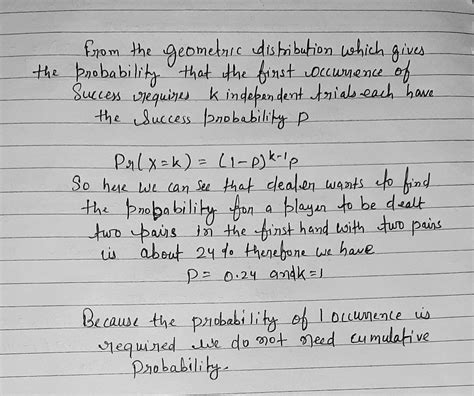 From the geometric distribution which gives
the probability that the first occurrence of
Success requires k independent trials each have
the success probability p
Pr(X=k) = (1-p)^k-1 p
So here we can see that dealer wants to find
the probability for a player to be dealt
two pairs in the first hand with two pairs
is about 24% therefore we have
P= 0.24 and k=1
Because the probability of 1 occurrence is
required we do not need cumulative
Probability.